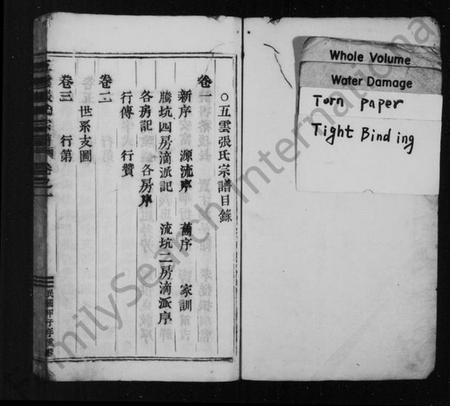 ○五雲張氏宗譜目錄
卷一
新序 源流序 舊序 家訓
騰坑四房滴派記 流坑二房滴派序
各房記 各房序
行傳 行贊
卷二
世系支圖
卷三 行第
Whole Volume
Water Damage
Torn paper
Tight Binding
FamilySearch International